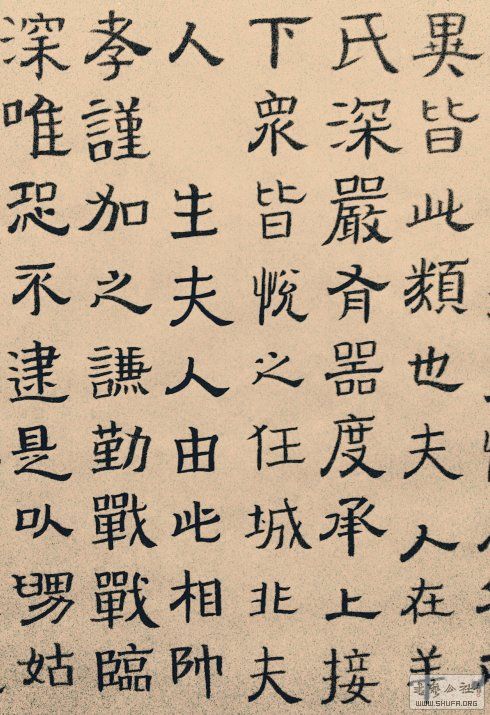 異皆此類也夫人在羊
氏深嚴有器度承上接
下衆皆悅之任城北夫
人 生夫人由此相帥
孝謹加之謙勤戰戰臨
深唯恐不逮是以舅姑
公社
WWW.SHUFA.ORG